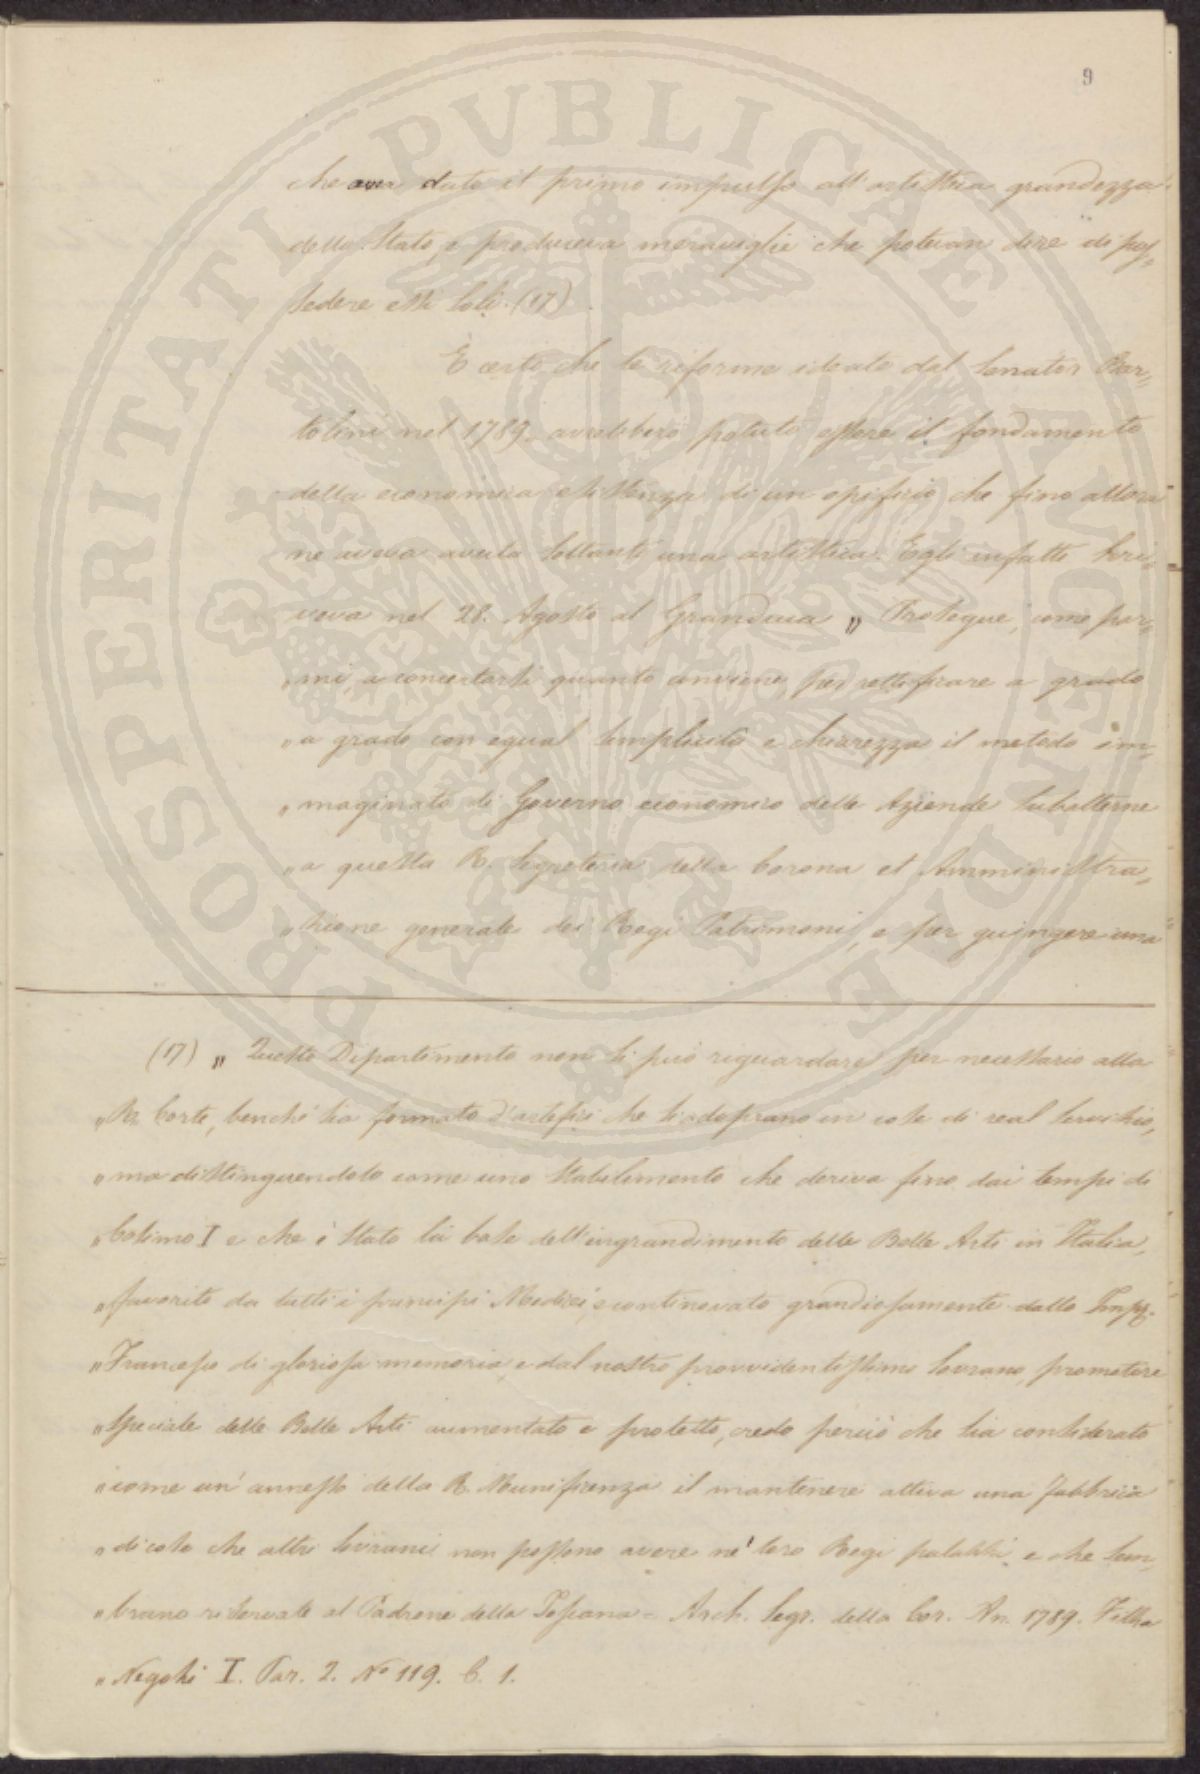 9
che aver dato il primo impulso all'artistica grandezza
dello Stato, e produceva meraviglie che potevan dire di pos=
sedere essi soli. (17)
È certo che le riforme ideate dal Senator Bar=
tolini nel 1789. avrebbero potuto essere il fondamento
della economica esistenza di un opificio che fino allora
ne aveva avuta soltanto una artistica. Egli infatti scri=
veva nel 28. Agosto al Granduca „ Prosegue, come par=
„ mi, a concertarsi quanto conviene per rettificare a grado
„ a grado con egual semplicità e chiarezza il metodo im=
„ maginato di Governo economico delle Aziende subalterne
„ a questa R. Segreteria della Corona et Amministra=
„ zione generale dei Regi Patrimoni, e per giungere una
(17) „ Questo Dipartimento non si può riguardare per necessario alla
„ R. Corte, benchè sia formato d'artefici che si adoprano in cose di real servizio,
„ ma distinguendolo come uno stabilimento che deriva fino dai tempi di
„ Cosimo I e che è stato la base dell'ingrandimento delle Belle Arti in Italia,
„ favorito da tutti i principi Medici, e continovato grandiosamente dallo Imp.
„ Francesco di gloriosa memoria, e dal nostro provvidentissimo Sovrano, promotore
„ speciale delle Belle Arti aumentato e protetto, credo perciò che sia considerato
„ come un' annesso della R. Munificenza il mantenere attiva una fabbrica
„ di cose che altri Sovrani non possono avere ne' loro Regi palazzi, e che sem=
„ brano riservate al Padrone della Toscana = Arch. Segr. della Cor. An. 1789. Filza
„ Negozi I. Par. 2. No 119. C. 1.
PROSPERITATI PVBLICAE AVGENDAE